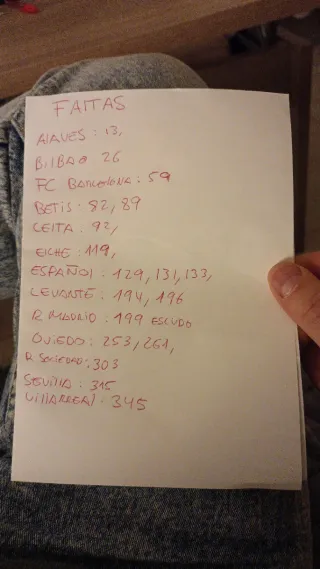 FALTAS
ALAVES: 13,
BILBAO 26
FC BARCELONA: 59
BETIS: 82, 89
CELTA: 92,
ELCHE: 119,
ESPAÑOL: 129, 131, 133,
LEVANTE: 194, 196
R MADRID: 199 ESCUDO
OVIEDO: 253, 261,
R SOCIEDAD: 303
SEVILLA: 315
VILLARREAL: 345